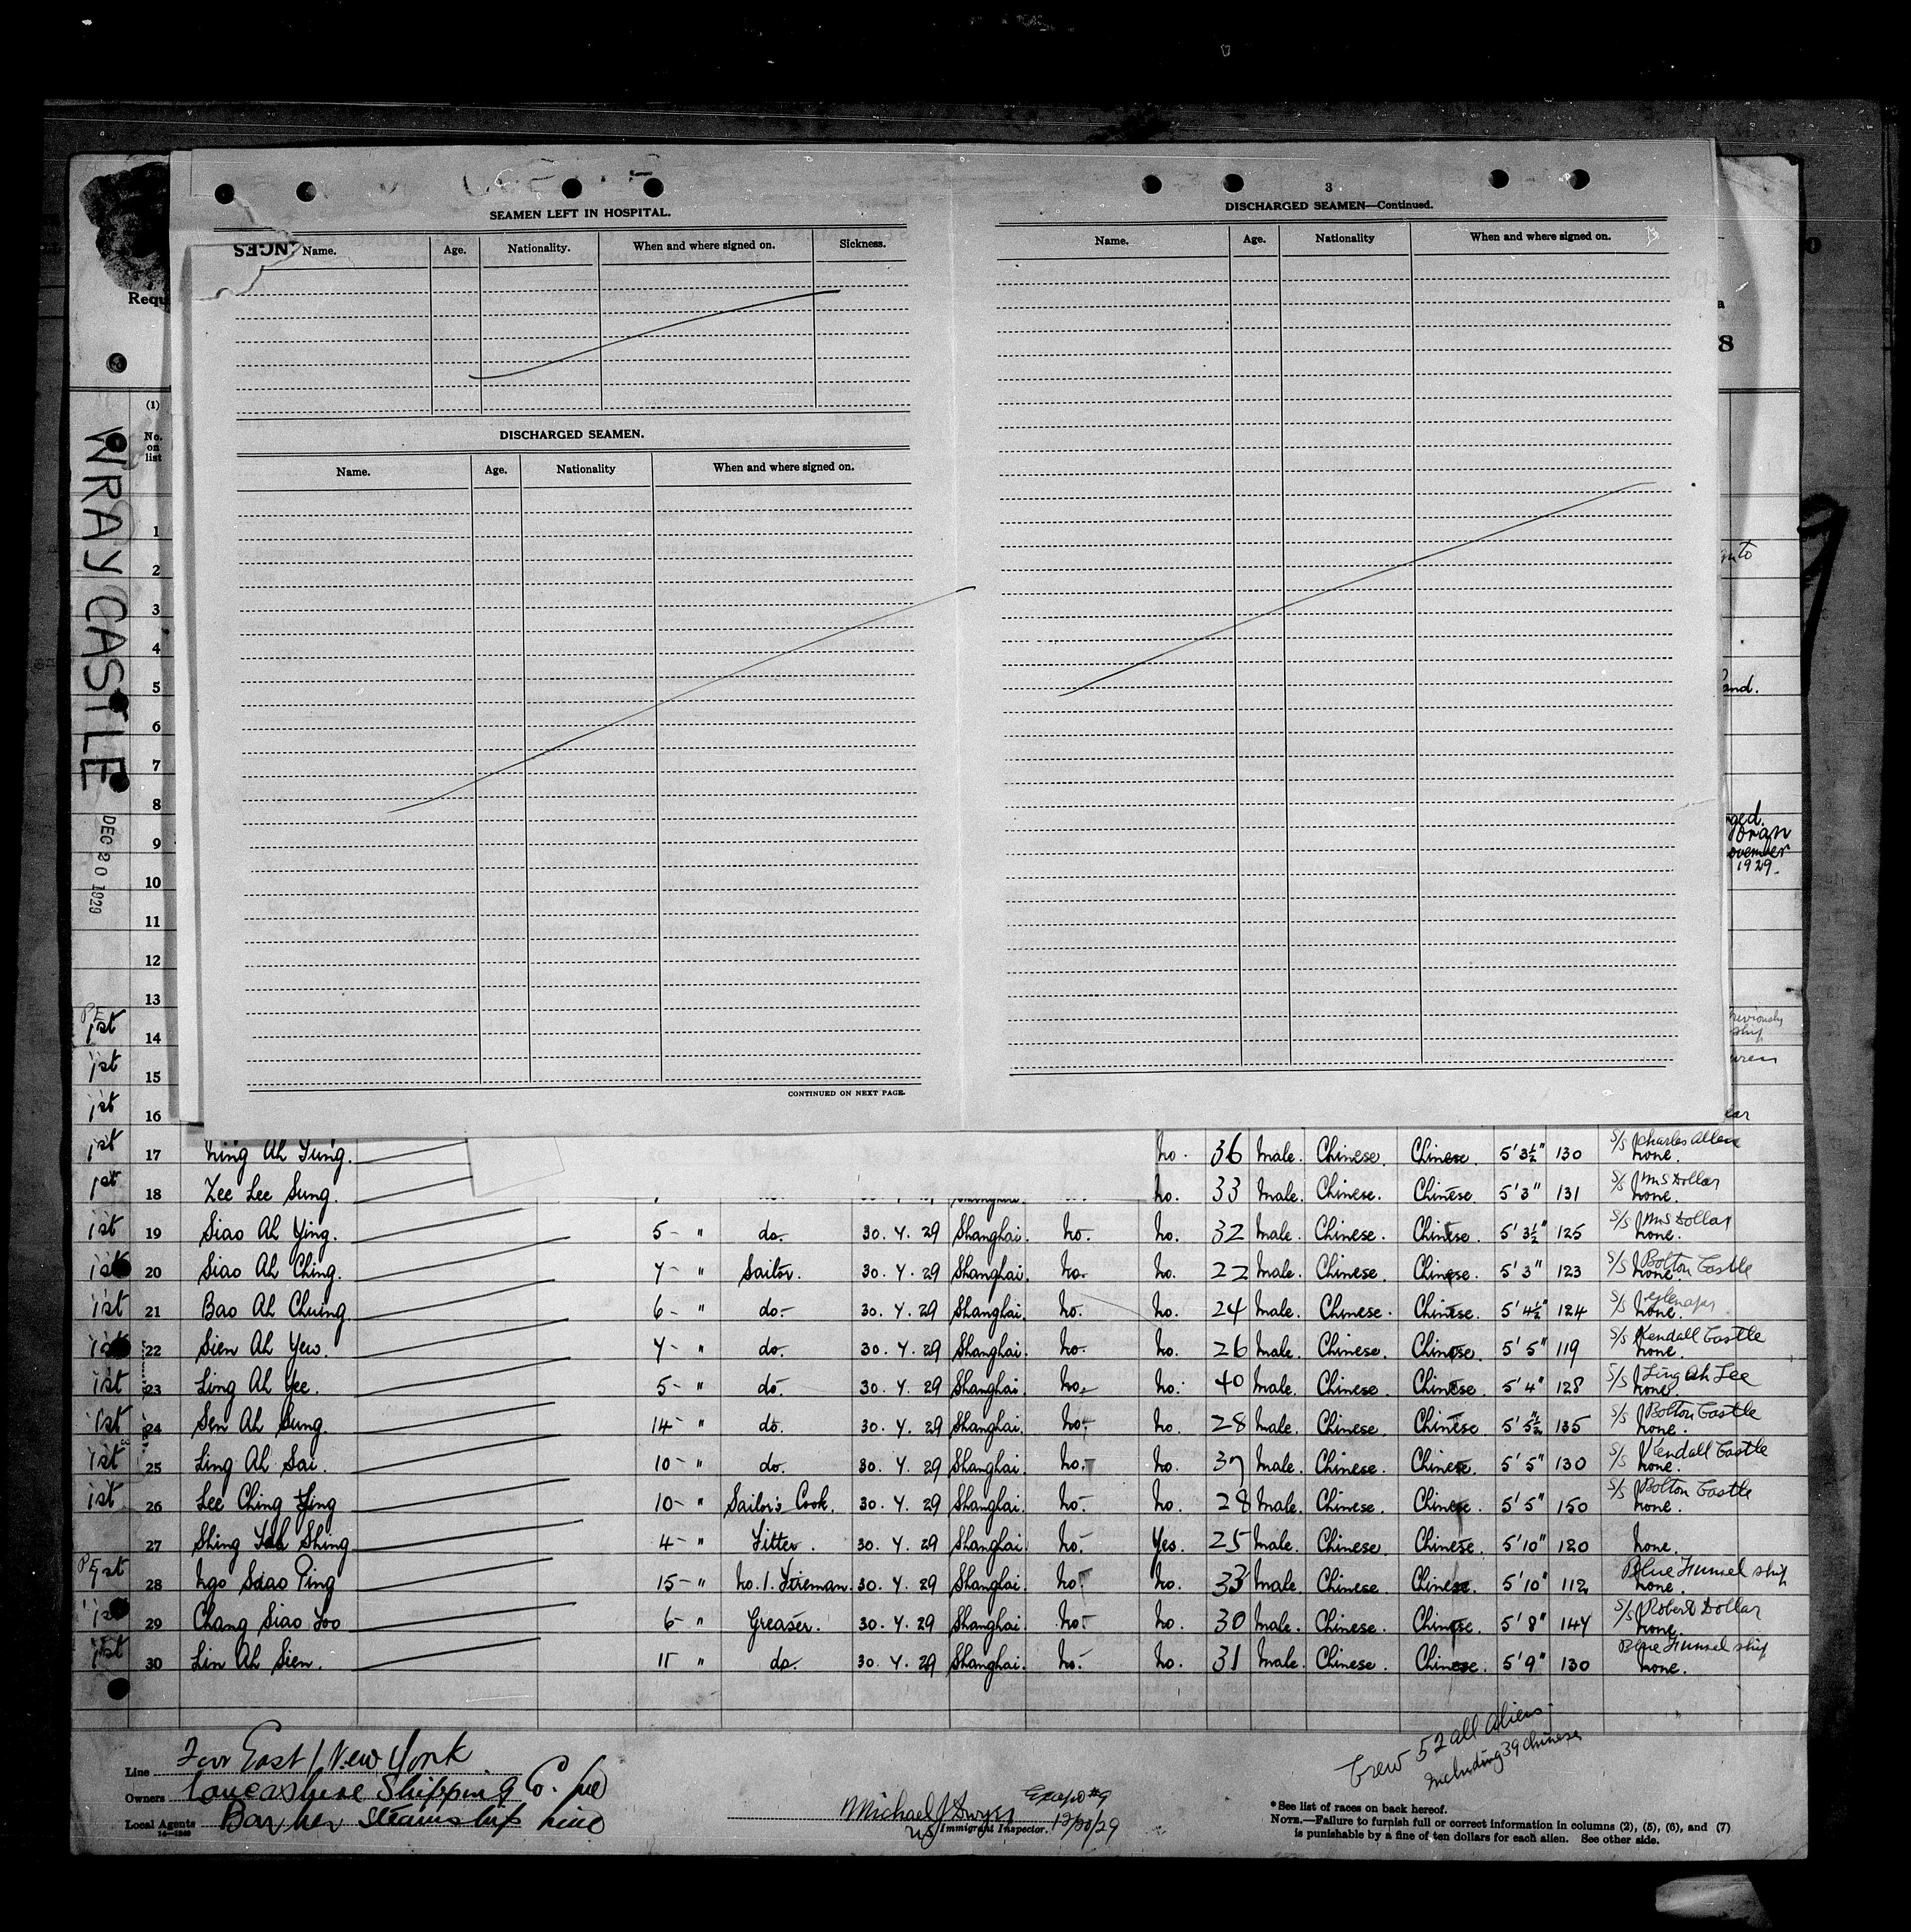 3
SEAMEN LEFT IN HOSPITAL.
NGES
Name. Age. Nationality. When and where signed on. Sickness.
DISCHARGED SEAMEN.
Name. Age. Nationality When and where signed on.
CONTINUED ON NEXT PAGE.
DISCHARGED SEAMEN—Continued.
Name. Age. Nationality When and where signed on.
Requ
a
8
(1)
No. on list
WRAY CASTLE
DEC 20 1929
and.
1929.
1
2
3
4
5
6
7
8
9
10
11
12
13
P.E. 1st 14
1st 15
1st 16
1st 17 Ning Ah Sung. no. 36 Male. Chinese. Chinese. 5' 3½" 130 S/S Charles Allen none.
1st 18 Zee Lee Sung. no. 33 Male. Chinese. Chinese 5' 3" 131 S/S Ms Dollar none.
1st 19 Siao Ah Ying. 5- " do. 30. 4. 29 Shanghai. no. no. 32 Male. Chinese. Chinese. 5' 3½" 125 S/S Ms Dollar none.
1st 20 Siao Ah Ching. 4- " Sailor. 30. 4. 29 Shanghai. no. no. 22 Male. Chinese. Chinese. 5' 3" 123 S/S Bolton Castle none.
1st 21 Bao Ah Chung. 6- " do- 30. 4. 29 Shanghai. no. no. 24 Male. Chinese. Chinese. 5' 4½" 124 S/S none.
1st 22 Sien Ah Yew. 4- " do. 30. 4. 29 Shanghai. no. no. 26 Male. Chinese. Chinese. 5' 5" 119 S/S Kendall Castle none.
1st 23 Ling Ah Yee. 5- " do. 30. 4. 29 Shanghai. no. no. 40 Male. Chinese. Chinese. 5' 4" 128 S/S Ling Ah Lee none
1st 24 Sen Ah Sung. 14- " do. 30. 4. 29 Shanghai. no. no. 28 Male. Chinese. Chinese. 5' 5½" 135 S/S Bolton Castle none.
1st 25 Ling Ah Sai. 10- " do. 30. 4. 29 Shanghai. no. no. 37 Male. Chinese. Chinese. 5' 5" 130 S/S Kendall Castle none.
1st 26 Lee Ching Ying 10- " Sailor's Cook. 30. 4. 29 Shanghai. no. no. 28 Male. Chinese. Chinese. 5' 5" 150 S/S Bolton Castle none.
27 Shing Yah Shing 4- " Fitter. 30. 4. 29 Shanghai. no. Yes. 25 Male. Chinese. Chinese. 5' 10" 120 none.
P.E. 1st 28 Ngo Siao Ping 15- " No. 1. Fireman. 30. 4. 29 Shanghai. no. no. 33 Male. Chinese. Chinese. 5' 10" 112 Blue Funnel ship none.
1st 29 Chang Siao Foo 6- " Greaser. 30. 4. 29 Shanghai. no. no. 30 Male. Chinese. Chinese. 5' 8" 144 S/S Robert Dollar none.
1st 30 Lin Ah Sien. 11 " do. 30. 4. 29 Shanghai. no. no. 31 Male. Chinese. Chinese. 5' 9" 130 Blue Funnel ship none.
Crew 52 all Aliens
including 39 Chinese
Line Far East / New York
Owners Lancashire Shipping Co. Ltd
Local Agents Barber Steamship Line
14-1240
Michael J Dwyer
US Immigrant Inspector. 12/20/29
*See list of races on back hereof.
NOTE.—Failure to furnish full or correct information in columns (2), (5), (6), and (7)
is punishable by a fine of ten dollars for each alien. See other side.